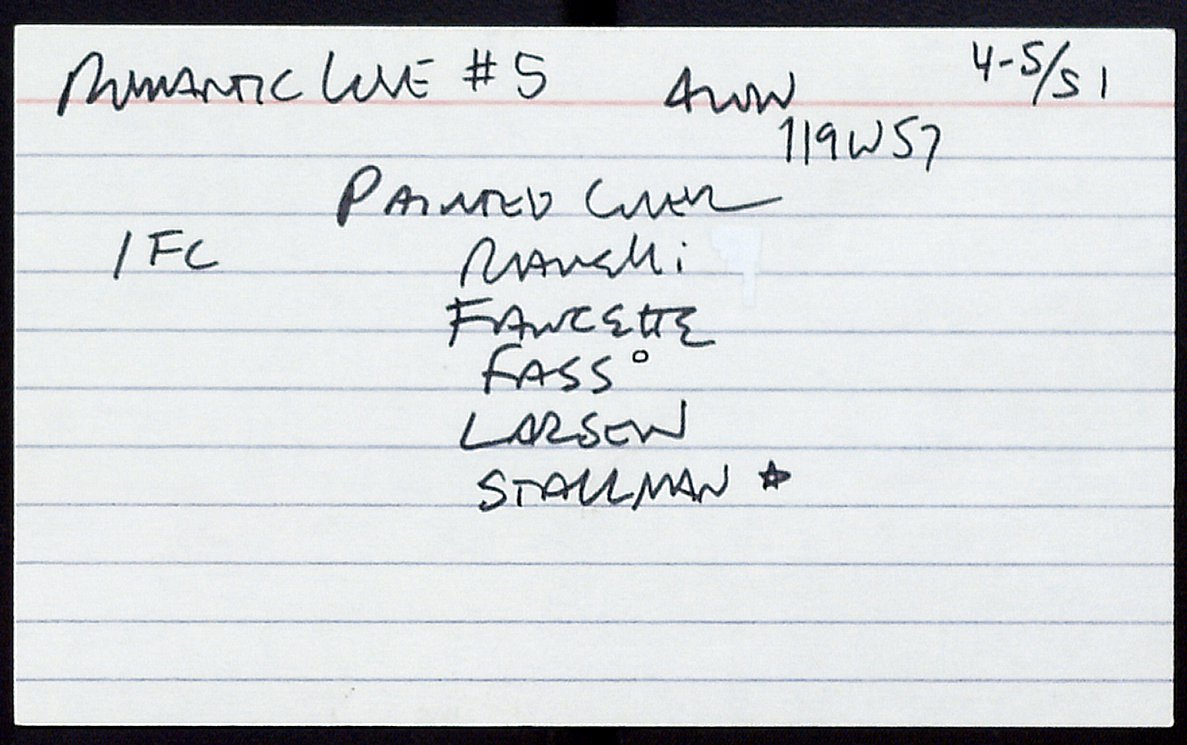 ROMANTIC LOVE #5 AVON 4-5/51
119 W 57
PAINTED COVER
IFC RAVielli
FAWCETTE
FASS°
LARSEN
STALLMAN ★